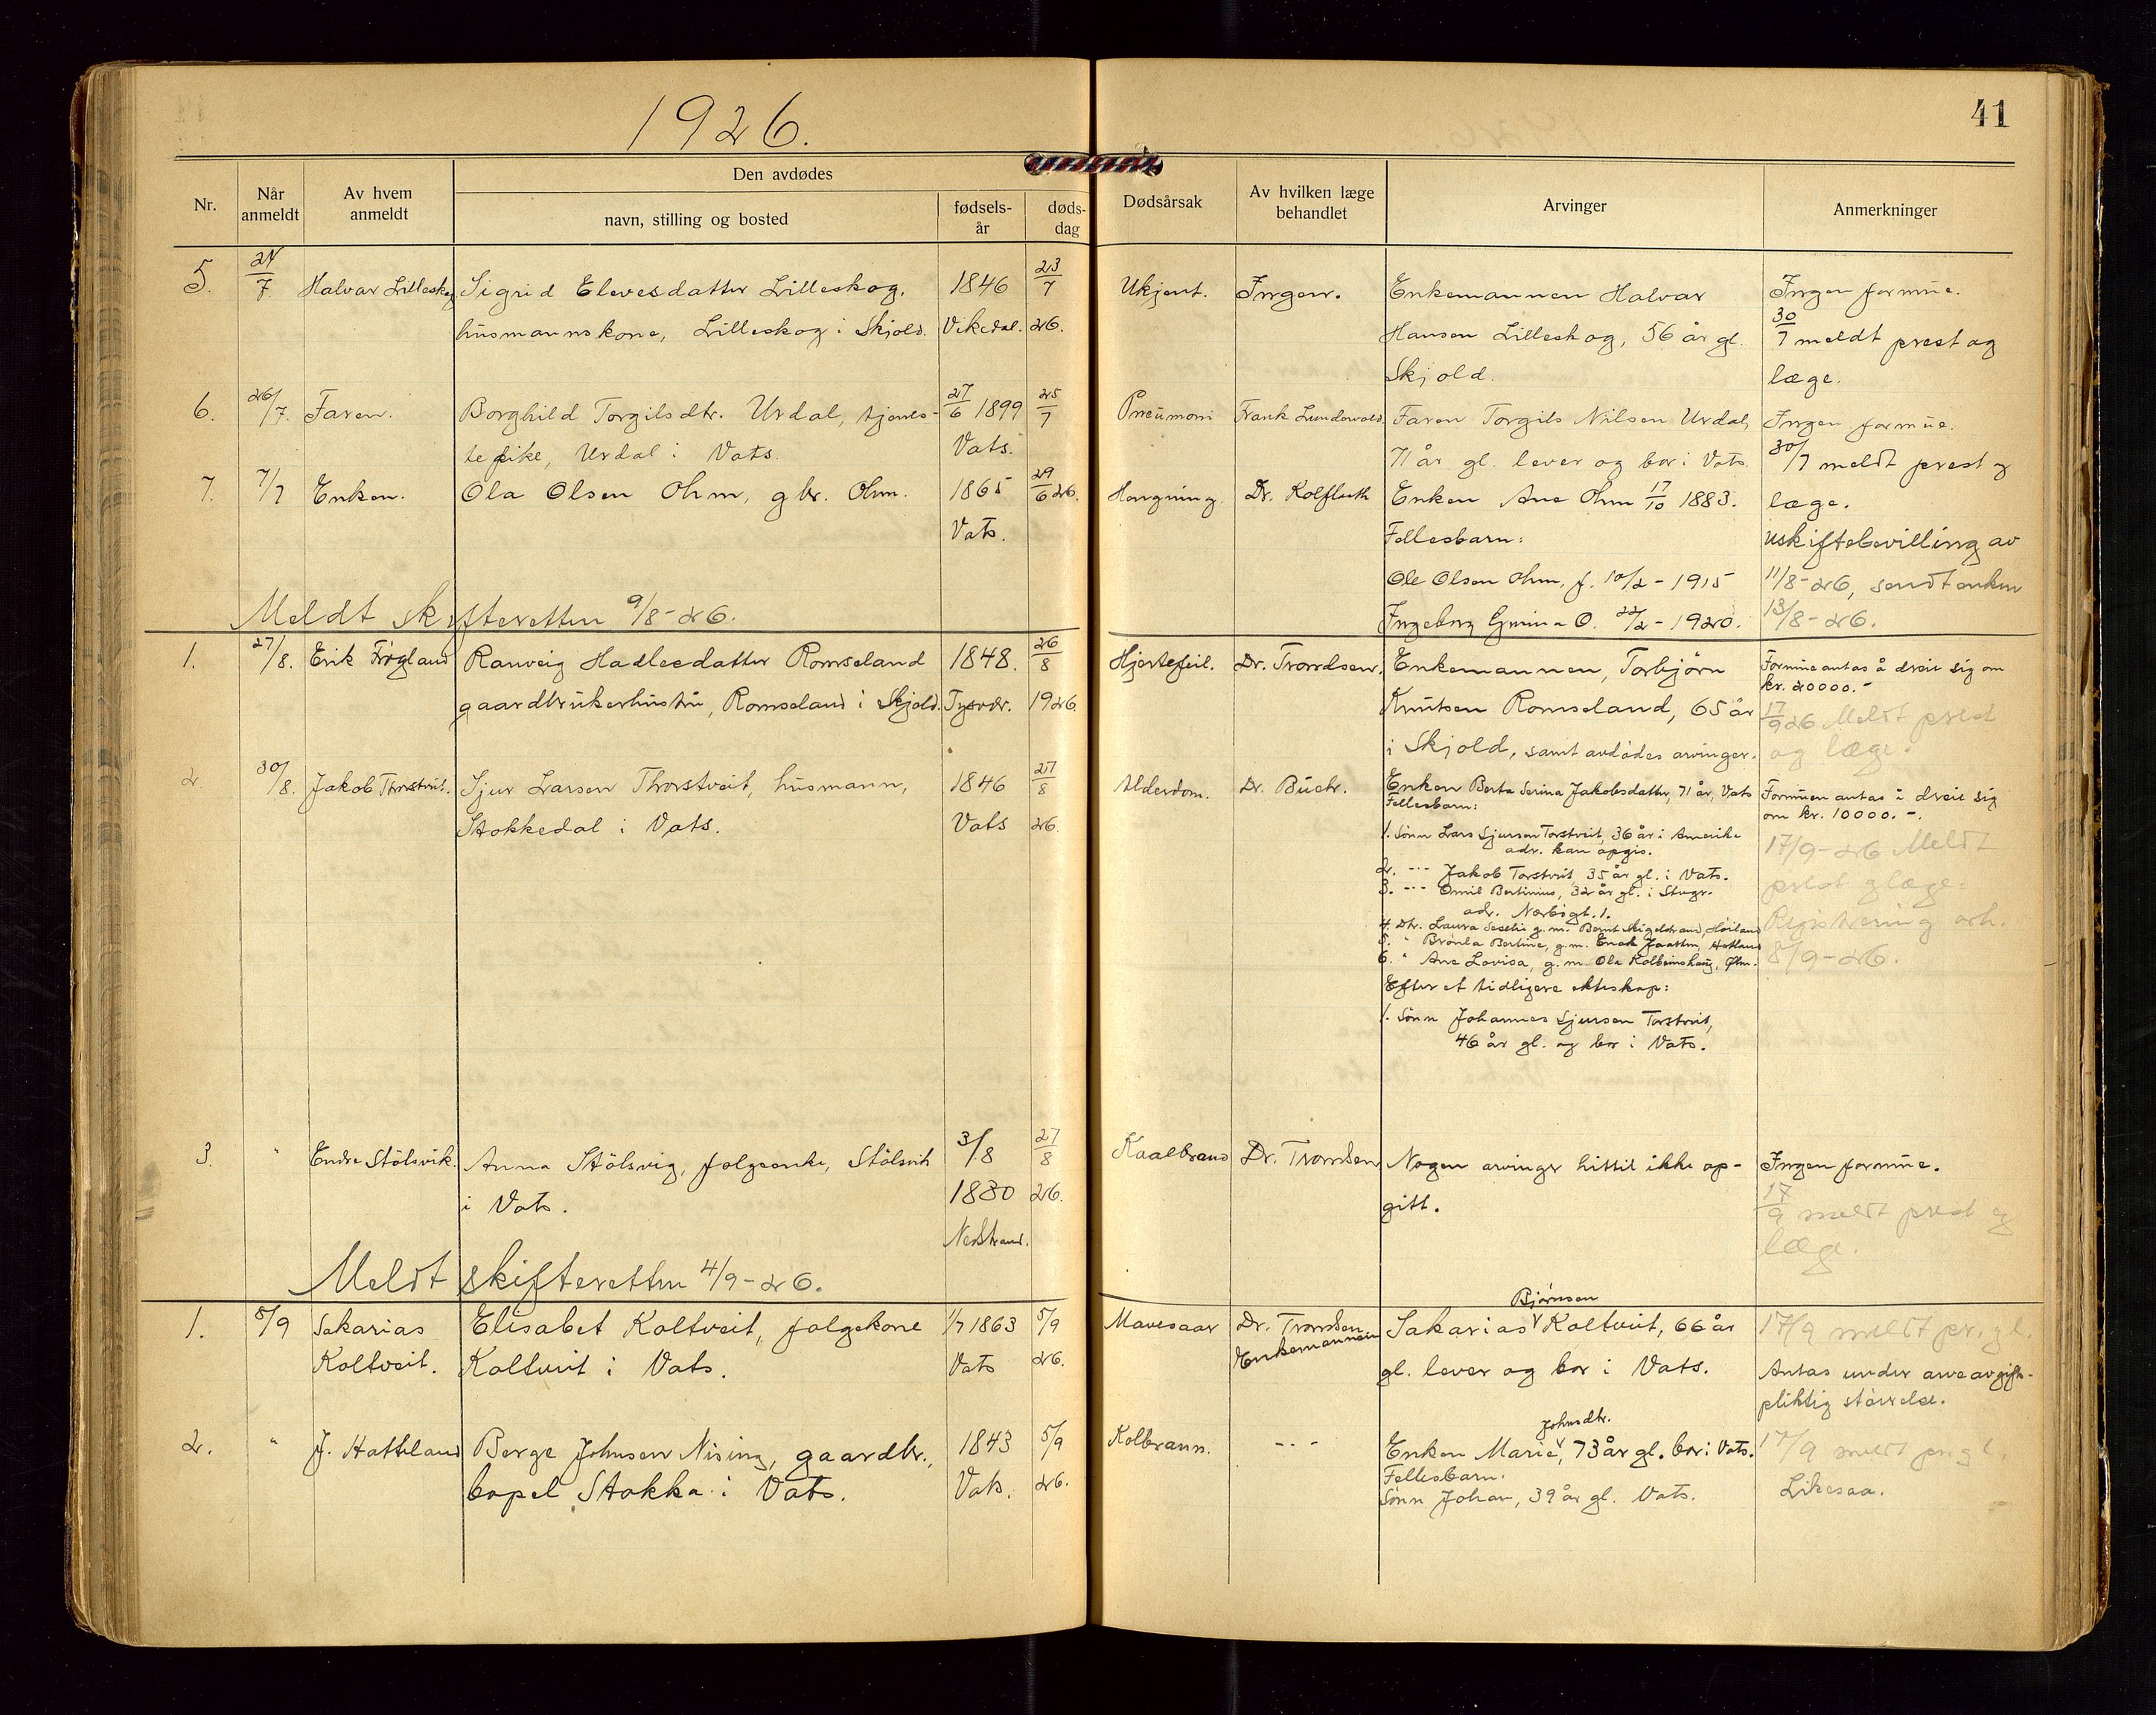 1926.
41
Nr.
Når anmeldt
Av hvem anmeldt
Den avdødes
navn, stilling og bosted
fødsels-
år
døds-
dag
Dødsårsak
Av hvilken læge
behandlet
Arvinger
Anmerkninger
5. 24/7 Halvar Lilleskog Sigrid Elevesdatter Lilleskog, 1846 23/7 Ukjent. Ingen. Enkemannen Halvar Ingen formue.
husmannskone, Lilleskog i Skjold. Vikedal. 26. Hansen Lilleskog, 56 år gl. 30/7 meldt prest og
Skjold. læge.
6. 26/7. Faren. Borghild Torgilsdtr. Urdal, tjenes- 27/6 1899 25/7 Pneumoni Frank Faren Torgils Nilsen Urdal, Ingen formue.
tepike, Urdal i Vats. Vats. 71 år gl. lever og bor i Vats. 30/7 meldt prest og
7. 7/7 Enken. Ola Olsen Ohm, gbr. Ohm. 1865 29/6 26. Hængning. Dr. Kolflath Enken Ane Ohm 17/10 1883. læge.
Vats. Fellesbarn: Uskiftebevilling av
Ole Olsen Ohm, f. 10/2 - 1915 11/8-26, sendt enken
Meldt skifteretten 9/8-26. Ingeborg O. 22/2 - 1920. 13/8-26.
1. 27/8. Erik Frøgland Ranveig Hadlesdatter Romseland 1848. 26/8 Hjertefeil. Dr. Tromdsen. Enkemannen, Torbjørn Formue antas å dreie sig om
kr. 20000.-
gaardbrukerhustru, Romseland i Skjold. Tysvær. 1926. Knutsen Romseland, 65 år 17/9 26 Meldt prest
i Skjold, samt avdødes arvinger. og læge.
2. 30/8. Jakob Thorstveit. Sjur Larsen Thorstveit, husmann, 1846 27/8 Alderdom. Dr. Buch. Enken Berta Serina Jakobsdatter, 71 år, Vats Formuen antas å dreie sig
Stokkedal i Vats. Vats 26. Fellesbarn: om kr. 10000.-.
1. Sønn Lars Sjursen Torstveit, 36 år i Amerika 17/9-26 Meldt
adr. kan opgis.
2. -"- Jakob Torstveit, 35 år gl. i Vats. prest og læge.
3. -"- Emil Bertinius, 32 år gl. i Stvgr.
adr. Nærbøgt. 1.
4. Dtr. Laura g.m. Bernt Høiland Registrering
5. " Bertine, g.m. Enok Hatland
6. " Ane Lovisa, g.m. Ola Kolbeinshaug, Ølen. 8/9-26.
Efter et tidligere ekteskap:
1. Sønn Johannes Sjursen Torstveit,
46 år gl. og bor i Vats.
3. " Endre Stølsvik. Anna Stølsvig, folgeenke, Stølsvik 3/8 27/8 Kaalbrand Dr. Tromdsen Nogen arvinger hittil ikke op- Ingen formue.
i Vats. 1830 26. gitt. 17/9 meldt prest og
Nedstrand. læge.
Meldt skifteretten 4/9-26.
Bjørnsen
1. 5/9 Sakarias Elisabet Koltveit, folgekone 1/7 1863 5/9 Mavesaar Dr. Tromdsen Sakarias Koltveit, 66 år 17/9 meldt pr. og l.
Koltveit. Koltveit i Vats. Vats 26. Enkemannen gl. lever og bor i Vats. Antas under arveavgifts-
pliktig størrelse.
Johnsdtr.
2. " J. Hatteland Berge Johnsen Nising, gaardbr., 1843 5/9 Kolbrann. -"- Enken Marie, 73 år gl. bor i Vats. 17/9 meldt pr. og l.
bopel Stokka i Vats. Vats. 26. Fellesbarn. Likesaa.
Sønn Johan, 39 år gl. Vats.